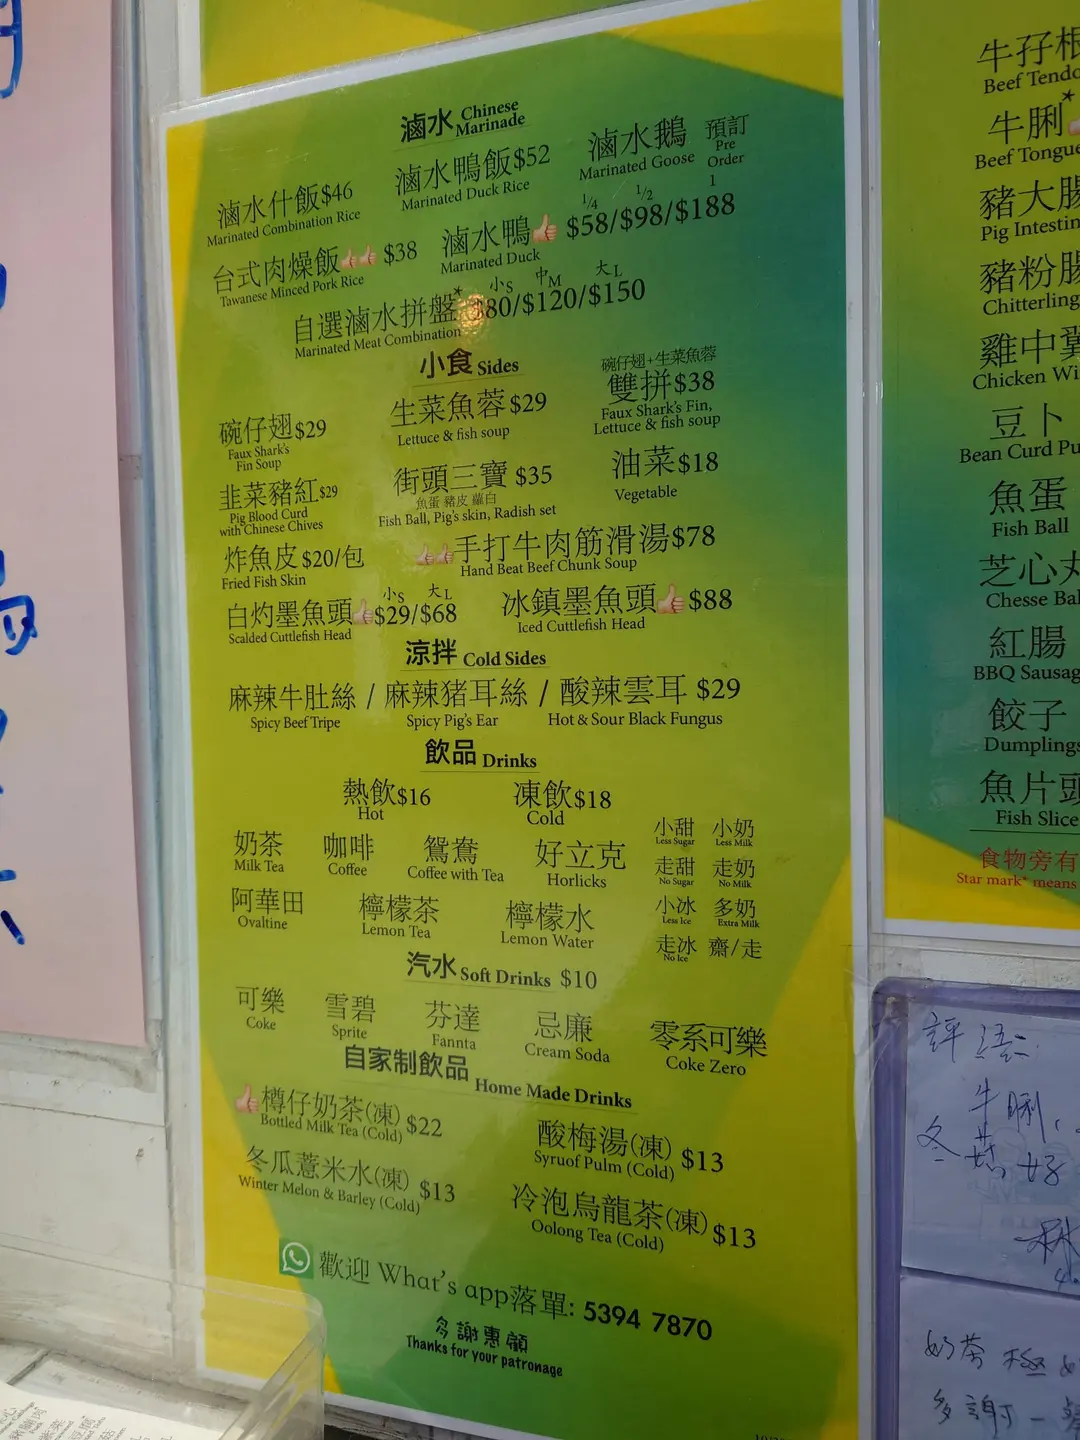 滷水 Chinese Marinade
滷水什飯$46
Marinated Combination Rice
滷水鴨飯$52
Marinated Duck Rice
滷水鵝 預訂
Marinated Goose Pre Order
台式肉燥飯 $38
Tawanese Minced Pork Rice
1/4 1/2 1
滷水鴨 $58/$98/$188
Marinated Duck
小S 中M 大L
自選滷水拼盤* $80/$120/$150
Marinated Meat Combination
小食 Sides
碗仔翅$29
Faux Shark's
Fin Soup
生菜魚蓉$29
Lettuce & fish soup
碗仔翅+生菜魚蓉
雙拼$38
Faux Shark's Fin,
Lettuce & fish soup
韭菜豬紅$29
Pig Blood Curd
with Chinese Chives
街頭三寶 $35
魚蛋 豬皮 蘿白
Fish Ball, Pig's skin, Radish set
油菜$18
Vegetable
炸魚皮$20/包
Fried Fish Skin
手打牛肉筋滑湯$78
Hand Beat Beef Chunk Soup
小S 大L
白灼墨魚頭 $29/$68
Scalded Cuttlefish Head
冰鎮墨魚頭 $88
Iced Cuttlefish Head
涼拌 Cold Sides
麻辣牛肚絲 / 麻辣豬耳絲 / 酸辣雲耳 $29
Spicy Beef Tripe Spicy Pig's Ear Hot & Sour Black Fungus
飲品 Drinks
熱飲$16 凍飲$18
Hot Cold
奶茶 咖啡 鴛鴦 好立克
Milk Tea Coffee Coffee with Tea Horlicks
阿華田 檸檬茶 檸檬水
Ovaltine Lemon Tea Lemon Water
小甜 小奶
Less Sugar Less Milk
走甜 走奶
No Sugar No Milk
小冰 多奶
Less Ice Extra Milk
走冰 齋/走
No Ice
汽水 Soft Drinks $10
可樂 雪碧 芬達 忌廉 零系可樂
Coke Sprite Fannta Cream Soda Coke Zero
自家制飲品 Home Made Drinks
樽仔奶茶(凍) $22
Bottled Milk Tea (Cold)
酸梅湯(凍) $13
Syruof Pulm (Cold)
冬瓜薏米水(凍) $13
Winter Melon & Barley (Cold)
冷泡烏龍茶(凍) $13
Oolong Tea (Cold)
歡迎 What's app落單: 5394 7870
多謝惠顧
Thanks for your patronage
牛孖根
Beef Tendo
牛脷*
Beef Tongue
豬大腸
Pig Intestin
豬粉腸
Chitterling
雞中翼
Chicken Wi
豆卜
Bean Curd Pu
魚蛋
Fish Ball
芝心丸
Chesse Bal
紅腸
BBQ Sausag
餃子
Dumplings
魚片頭
Fish Slice
食物旁有
Star mark* means
評語:
牛脷,
冬菇 好
奶茶 極
多謝